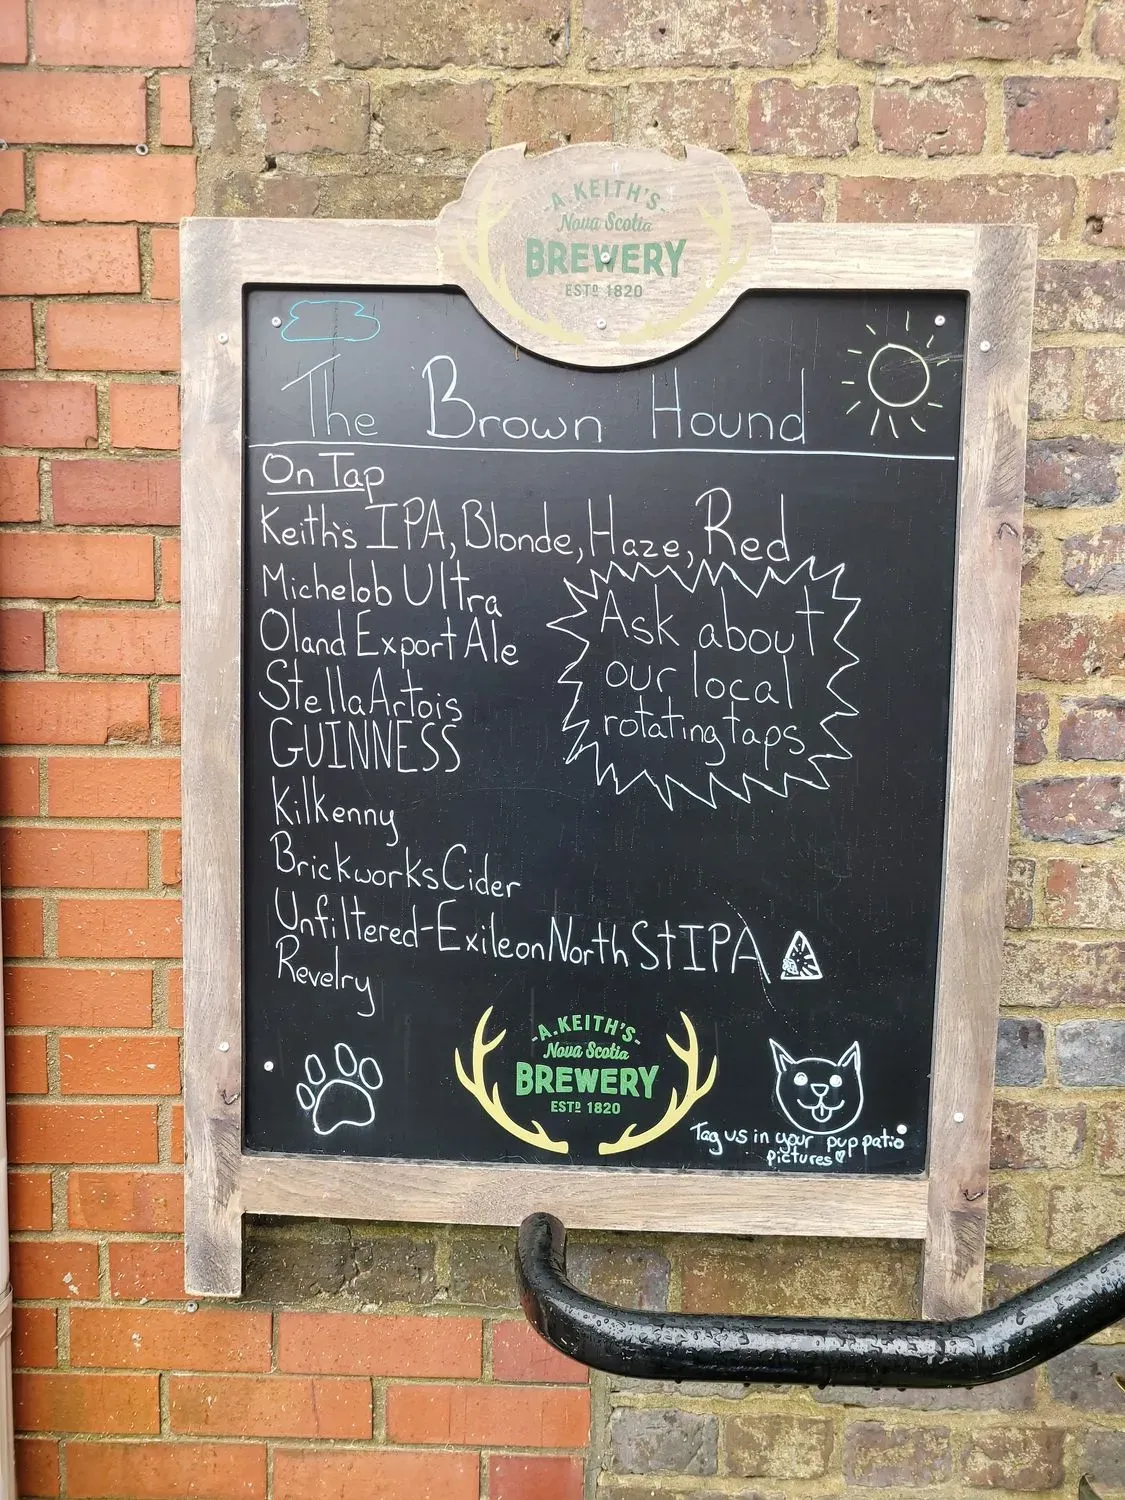 A KEITH'S
Nova Scotia
BREWERY
ESTD 1820
The Brown Hound
On Tap
Keith's IPA, Blonde, Haze, Red
Michelob Ultra
Oland Export Ale
Stella Artois
GUINNESS
Kilkenny
Brickworks Cider
Unfiltered-Exile on North St IPA
Revelry
Ask about
our local
rotating taps
A. KEITH'S
Nova Scotia
BREWERY
ESTD 1820
Tag us in your pup patio
pictures